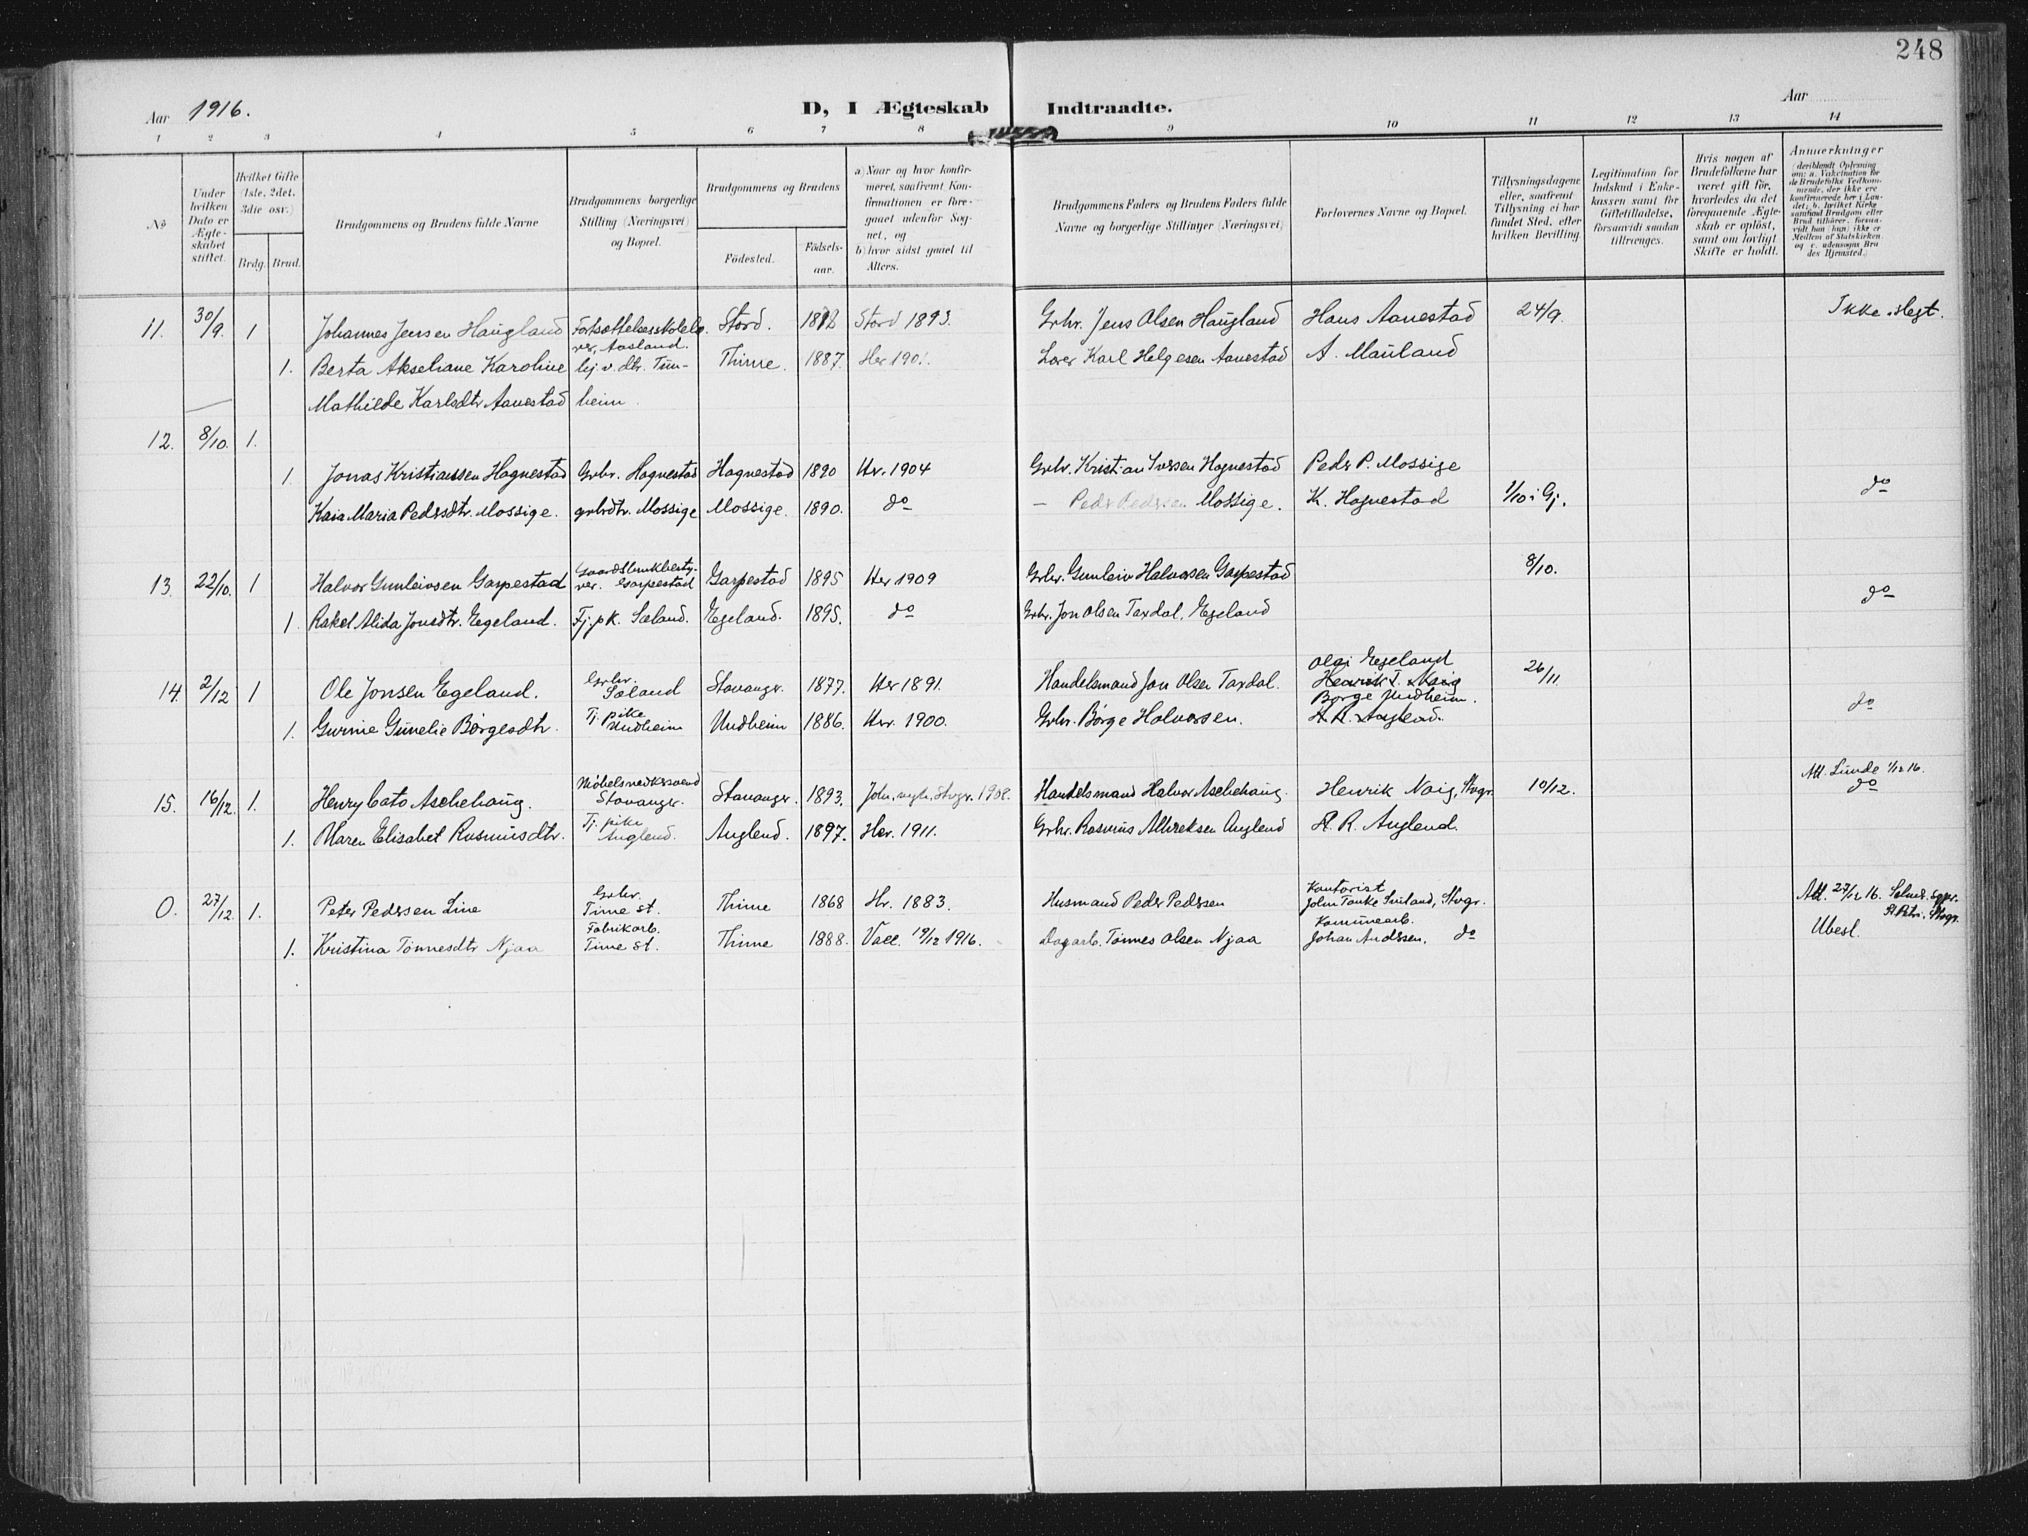 248
Aar 1916.
D, I Ægteskab Indtraadte.
Aar
1 2 3 4 5 6 7 8 9 10 11 12 13 14
No
Under hvilken Dato er Ægteskabet stiftet.
Hvilket Gifte (1ste, 2det, 3die osv.)
Brdg. Brud.
Brudgommens og Brudens fulde Navne
Brudgommens borgerlige Stilling (Næringsvei) og Bopæl.
Brudgommens og Brudens
Födested. Födselsaar.
a) Naar og hvor konfirmeret, saafremt Konfirmationen er foregaaet udenfor Sognet, og
b) hvor sidst gaaet til Alters.
Brudgommens Faders og Brudens Faders fulde Navne og borgerlige Stillinger (Næringsvei)
Forlovernes Navne og Bopæl.
Tillysningsdagene eller, saafremt Tillysning ei har fundet Sted, efter hvilken Bevilling
Legitimation for Indskud i Enkekassen samt for Giftetilladelse, forsaavidt saadan tiltrænges.
Hvis nogen af Brudefolkene har været gift för, hvorledes da det foregaaende Ægteskab er oplöst, samt om lovligt Skifte er holdt.
Anmerkninger
(deriblandt Oplysning om: a. Vakcination for de Brudefolks Vedkommende, der ikke ere konfirmerede her i Landet; b. hvilket Kirkesamfund Brudgom eller Brud tilhører, forsaavidt han (hun) ikke er Medlem af Statskirken, og c. udensogns Brudes Hjemsted.)
11. 30/9. 1 Johannes Jensen Haugland Stord. Stord 1893. Grbr. Jens Olsen Haugland Hans Aanestad 24/9. Ikke slegt.
1. Berta Akseliane Karoline Thime. 1887. Lærer Karl Helgesen Aanestad A. Mauland
Mathilde Karlsdtr Aanestad heim.
12. 8/10. 1.
1 Jonas Kristianssen Hognestad Grbr. Hognestad Hognestad 1890 Her. 1904 Grbr. Kristian Iversen Hognestad Peder P. Mossige
Kaia Maria Pedersdtr. Mossige. grbrdtr. Mossige Mossige. 1890. do – Peder Pedersen Mossige. K. Hognestad 1/10 i Gj. do
13. 22/10. 1 Halvor Gunleivsen Garpestad Garpestad Garpestad 1895 Her 1909 Grbr. Gunleiv Halvorsen Garpestad 8/10.
1. Rakel Alida Jonsdtr. Egeland. Tj.pk. Sæland. Egeland. 1895. do Grbr. Jon Olsen Taxdal, Egeland do
14. 2/12 1 Ole Jonsen Egeland. Grbr. Sæland Stavanger. 1877. Her 1891. Handelsmand Jon Olsen Taxdal. Olai Egeland 26/11
Henrik T. Naig
Børge Undheim.
1. Gurine Gunelie Børgesdtr. Tj. pike Undheim Undheim 1886. Her. 1900. Grbr. Børge Halvorsen. A. R. Auglend. do
15. 16/12. 1. Henry Cato Aschehaug. Møbelsnedkersvend Stavanger. Stavanger. 1893. Joh. mgh. Stvgr. 1908. Handelsmand Halvor Aschehaug Henrik Naig, Stvgr. 10/12. Att. Lunde 1/12 16. do
1. Maren Elisabet Rasmusdtr. Tj. pike Auglend. Auglend. 1897. Her. 1911. Grbr. Rasmus Albreksen Auglend A. R. Auglend.
0. 27/12. 1. Peter Pedersen Line Grbr. Time st. Thime 1868 Hr. 1883. Husmand Peder Pedersen Kontorist John Tanke Sviland, Stvgr. Att. 27/12 16. St. Petri, Stvgr.
1. Kristina Tønnesdtr Njaa Fabrikarb. Time st. Thime 1888. Vacc. 19/12 1916. Dagarb. Tønnes Olsen Njaa Kommunearb. Johan Andersen, do Ubesl.